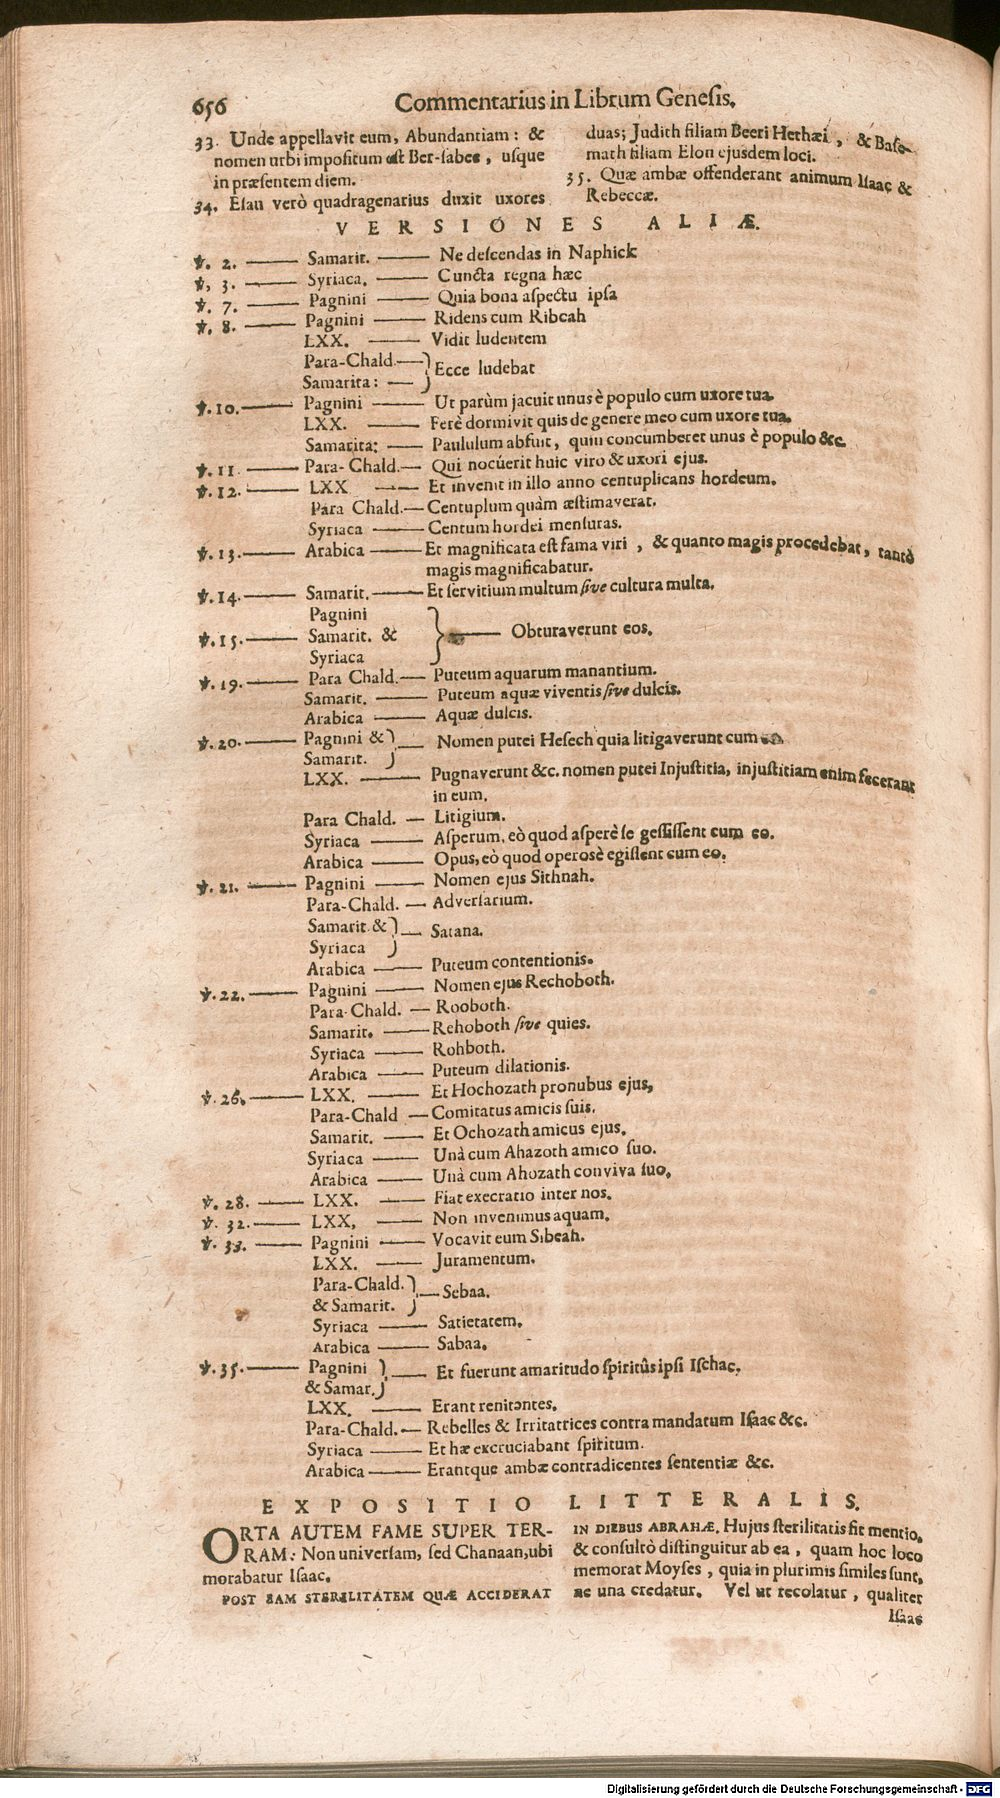 656 Commentarius in Librum Genesis.
33. Unde appellavit eum, Abundantiam: &
nomen urbi impositum est Ber-sabee, usque
in præsentem diem.
34. Esau verò quadragenarius duxit uxores
duas; Judith filiam Beeri Hethæi, & Base-
math filiam Elon ejusdem loci.
35. Quæ ambæ offenderant animum Isaac &
Rebeccæ.
VERSIONES ALIÆ.
℣. 2. —— Samarit. —— Ne descendas in Naphick
℣. 3. —— Syriaca. —— Cuncta regna hæc
℣. 7. —— Pagnini —— Quia bona aspectu ipsa
℣. 8. —— Pagnini —— Ridens cum Ribcah
LXX. —— Vidit ludentem
Para-Chald. —— } Ecce ludebat
Samarita: —— }
℣. 10. —— Pagnini —— Ut parùm jacuit unus è populo cum uxore tua.
LXX. —— Ferè dormivit quis de genere meo cum uxore tua.
Samarita: —— Paululum abfuit, quin concumberet unus è populo &c.
℣. 11. —— Para-Chald. —— Qui nocúerit huic viro & uxori ejus.
℣. 12. —— LXX —— Et invenit in illo anno centuplicans hordeum.
Para Chald. —— Centuplum quàm æstimaverat.
Syriaca —— Centum hordei mensuras.
℣. 13. —— Arabica —— Et magnificata est fama viri, & quanto magis procedebat, tantò
magis magnificabatur.
℣. 14. —— Samarit. —— Et servitium multum sive cultura multa.
Pagnini
℣. 15. —— Samarit. & } —— Obturaverunt eos.
Syriaca
℣. 19. —— Para Chald. —— Puteum aquarum manantium.
Samarit. —— Puteum aquæ viventis sive dulcis.
Arabica —— Aquæ dulcis.
℣. 20. —— Pagnini & } —— Nomen putei Hesech quia litigaverunt cum eo
Samarit. }
LXX. —— Pugnaverunt &c. nomen putei Injustitia, injustitiam enim fecerant
in eum.
Para Chald. — Litigium.
Syriaca —— Asperum, eò quod asperè se gessissent cum eo.
Arabica —— Opus, eò quod operosè egissent cum eo.
℣. 21. —— Pagnini —— Nomen ejus Sithnah.
Para-Chald. — Adversarium.
Samarit. & } — Satana.
Syriaca }
Arabica —— Puteum contentionis.
℣. 22. —— Pagnini —— Nomen ejus Rechoboth.
Para-Chald. — Rooboth.
Samarit. —— Rehoboth sive quies.
Syriaca —— Rohboth.
Arabica —— Puteum dilationis.
℣. 26. —— LXX. —— Et Hochozath pronubus ejus,
Para-Chald — Comitatus amicis suis.
Samarit. —— Et Ochozath amicus ejus.
Syriaca —— Unà cum Ahazoth amico suo.
Arabica —— Unà cum Ahozath conviva suo.
℣. 28. —— LXX. —— Fiat execratio inter nos.
℣. 32. —— LXX, —— Non invenimus aquam.
℣. 33. —— Pagnini —— Vocavit eum Sibeah.
LXX. —— Juramentum.
Para-Chald. } — Sebaa.
& Samarit. }
Syriaca —— Satietatem.
Arabica —— Sabaa.
℣. 35. —— Pagnini } —— Et fuerunt amaritudo spiritûs ipsi Ischac.
& Samar. }
LXX. —— Erant renitentes.
Para-Chald. — Rebelles & Irritatrices contra mandatum Isaac &c.
Syriaca —— Et hæ excruciabant spiritum.
Arabica —— Erantque ambæ contradicentes sententiæ &c.
EXPOSITIO LITTERALIS.
ORTA AUTEM FAME SUPER TER-
RAM: Non universam, sed Chanaan, ubi
morabatur Isaac.
POST EAM STERILITATEM QUÆ ACCIDERAT
IN DIEBUS ABRAHÆ. Hujus sterilitatis fit mentio,
& consultò distinguitur ab ea, quam hoc loco
memorat Moyses, quia in plurimis similes sunt,
ne una credatur. Vel ut recolatur, qualiter
Isaac
Digitalisierung gefördert durch die Deutsche Forschungsgemeinschaft - DFG